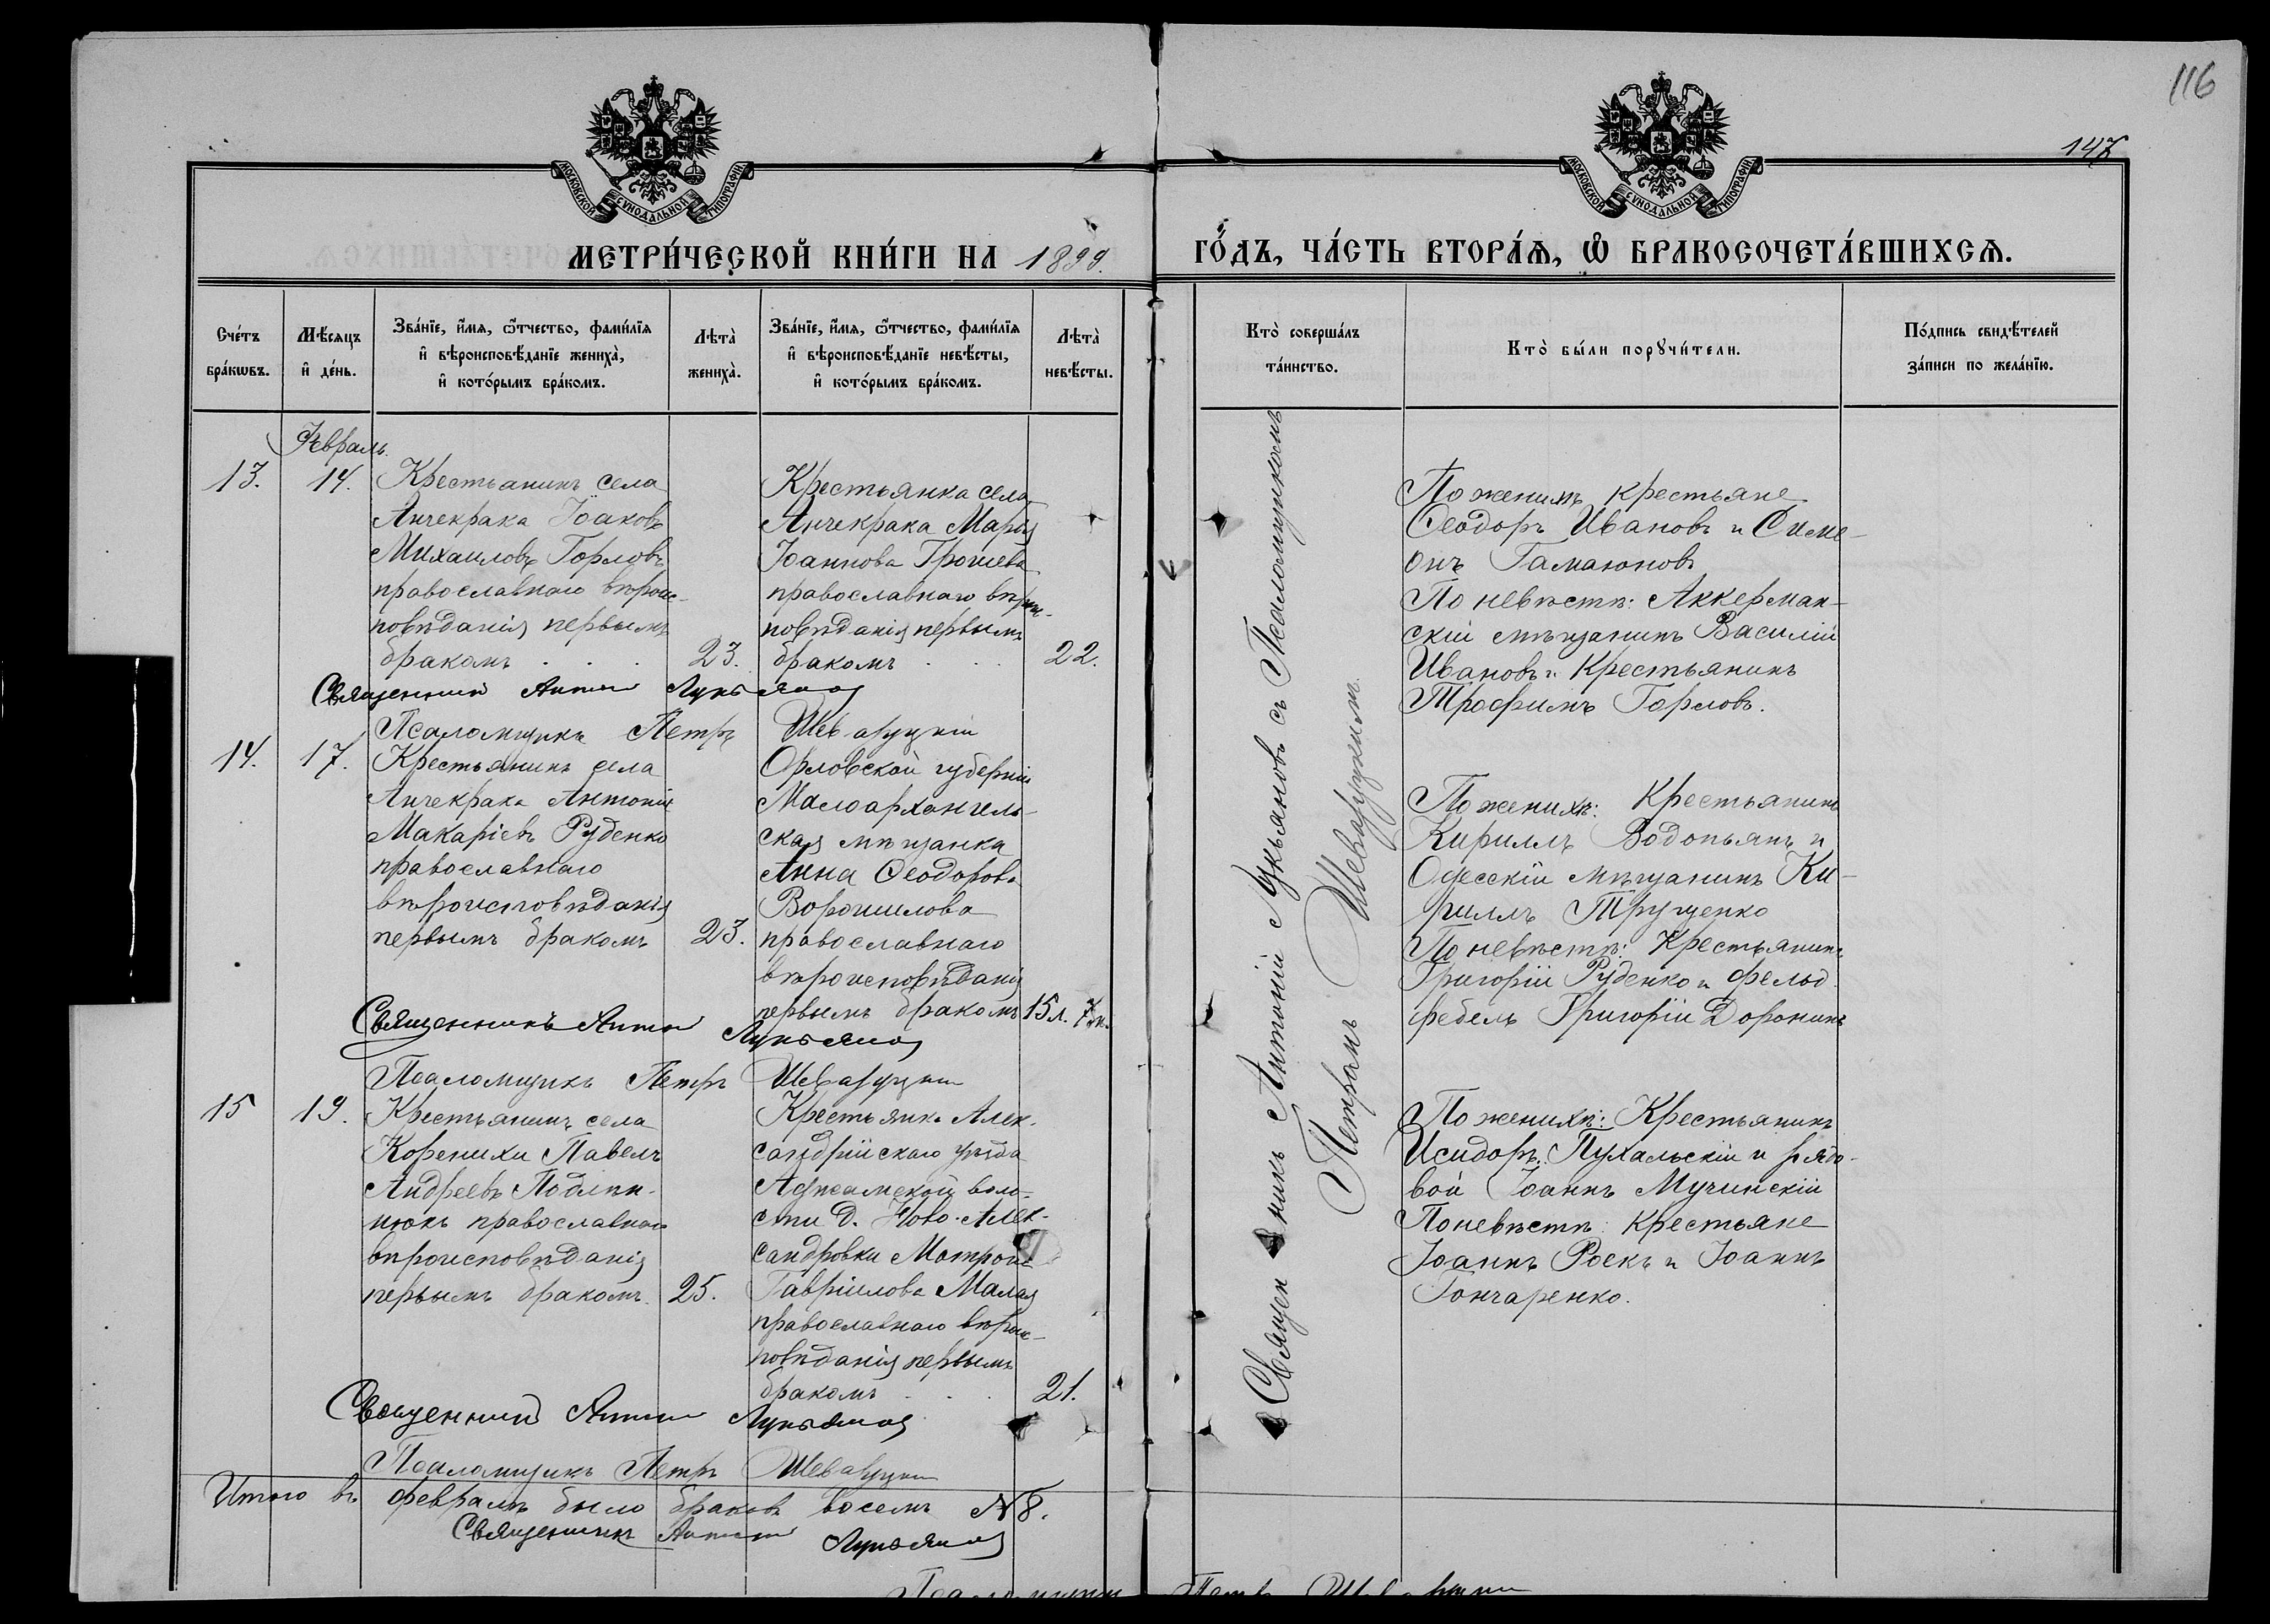 116
147
МОСКОВСКОЙ СУНОДАЛЬНОЙ ТИПОГРАФІИ
МОСКОВСКОЙ СУНОДАЛЬНОЙ ТИПОГРАФІИ
МЕТРИ́ЧЕСКОЙ КНИ́ГИ НА 1899.
ГО́ДЪ, ЧА́СТЬ ВТОРА́Ѧ, Ѡ БРАКОСОЧЕТА́ВШИХСѦ.
Сче́тъ бра́кѡвъ.
Мѣ́сяцъ и де́нь.
Зва́нїе, и́мя, ѻ҆́тчество, фами́лїя и вѣроисповѣ́данїе жениха̀, и кото́рымъ бра́комъ.
Лѣта̀ жениха̀.
Зва́нїе, и́мя, ѻ҆́тчество, фами́лїя и вѣроисповѣ́данїе невѣ́сты, и кото́рымъ бра́комъ.
Лѣта̀ невѣ́сты.
Кто̀ соверша́лъ та́инство.
Кто̀ бы́ли порꙋчи́тели.
По́дпись свидѣ́телей за́писи по жела́нїю.
Февраль.
13.
14.
Крестьянинъ села
Анчекрака Іоаковъ
Михаиловъ Горловъ
православнаго вѣроис-
повѣданія первымъ
бракомъ . . .
23.
Крестьянка села
Анчекрака Марія
Іоаннова Грошева
православнаго вѣроис-
повѣданія первымъ
бракомъ . . .
22.
По женихѣ крестьяне
Ѳеодоръ Ивановъ и Симе-
онъ Гамаюновъ
По невѣстѣ: Аккерман-
скій мѣщанинъ Василій
Ивановъ и Крестьянинъ
Трофимъ Горловъ.
Священникъ Антоній Лукьяновъ
Псаломщикъ Петръ Шеваруцкій
14.
17.
Крестьянинъ села
Анчекрака Антоній
Макаріевъ Руденко
православнаго
вѣроисповѣданія
первымъ бракомъ
23.
Орловской губерніи
Малоархангель-
ская мѣщанка
Анна Ѳеодорова
Ворошилова
православнаго
вѣроисповѣданія
первымъ бракомъ
15 л. 7 м.
По женихѣ: Крестьянинъ
Кириллъ Водопьянъ и
Одесскій мѣщанинъ Ки-
риллъ Трущенко
По невѣстѣ: Крестьянинъ
Григорій Руденко и фельд-
фебель Григорій Доронинъ
Священникъ Антоній Лукьяновъ
Псаломщикъ Петръ Шеваруцкій
15
19.
Крестьянинъ села
Коренихи Павелъ
Андреевъ
православнаго
вѣроисповѣданія
первымъ бракомъ.
25.
Крестьянка Алек-
сандрійскаго уѣзда
воло-
сти д. Ново-Алек-
сандровки Матрона
Гавріилова Малая
православнаго вѣроис-
повѣданія первымъ
бракомъ . . .
21.
По женихѣ: Крестьянинъ
Исидоръ Пухальскій и рядо-
вой Іоаннъ Мучинскій
По невѣстѣ: крестьяне
Іоаннъ Роекъ и Іоаннъ
Гончаренко.
Священникъ Антоній Лукьяновъ
Псаломщикъ Петръ Шеваруцкій
Священникъ Антоній Лукьяновъ съ Псаломщикомъ
Петромъ Шеваруцкимъ.
Итого въ февралѣ было браковъ восемь № 8.
Священникъ Антоній Лукьяновъ
Псаломщикъ Петръ Шеваруцкій